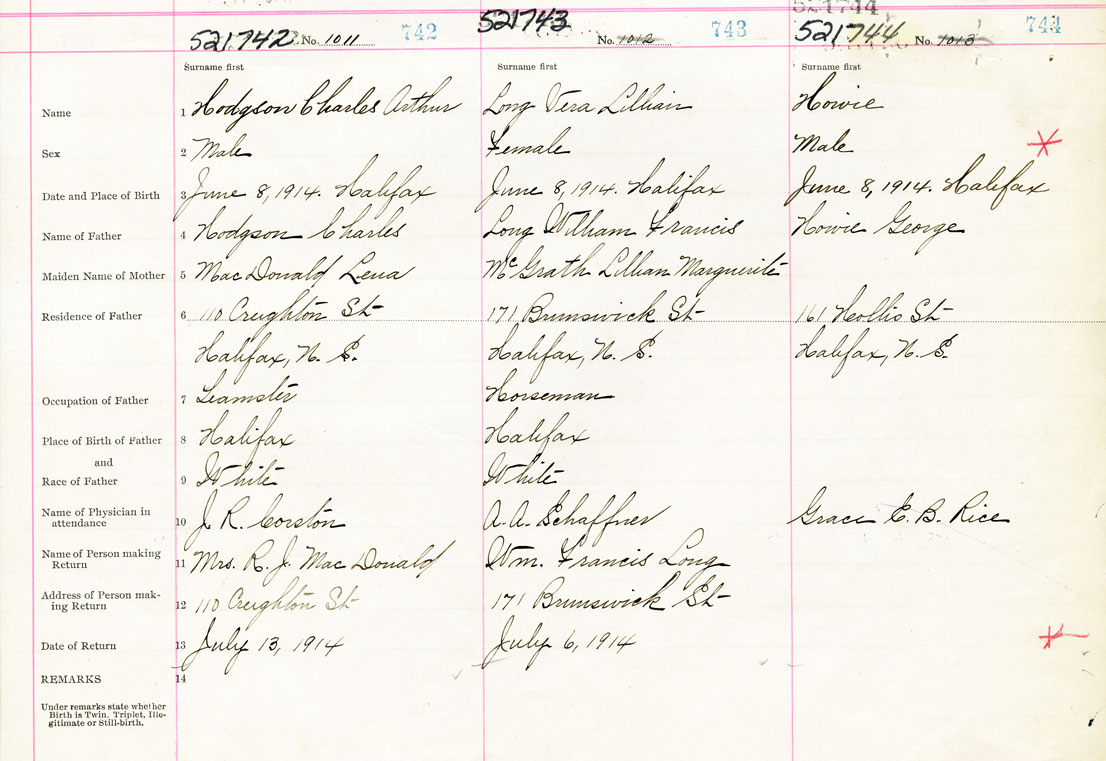 521742 No. 1011 742
521743 No. 1012 743
521744 No. 1013 744
Surname first Surname first Surname first
Name 1 Hodgson Charles Arthur Long Vera Lillian Howie
Sex 2 Male Female Male
Date and Place of Birth 3 June 8, 1914. Halifax June 8, 1914. Halifax June 8, 1914. Halifax
Name of Father 4 Hodgson Charles Long William Francis Howie George
Maiden Name of Mother 5 MacDonald Lena McGrath Lillian Marguerite
Residence of Father 6 110 Creighton St 171 Brunswick St 161 Hollis St
Halifax, N. S. Halifax, N. S. Halifax, N. S.
Occupation of Father 7 Teamster Horseman
Place of Birth of Father 8 Halifax Halifax
and
Race of Father 9 White White
Name of Physician in
attendance 10 J. R. Corston A. A. Schaffner Grace E. B. Rice
Name of Person making
Return 11 Mrs. R. J. MacDonald Wm. Francis Long
Address of Person mak-
ing Return 12 110 Creighton St 171 Brunswick St
Date of Return 13 July 13, 1914 July 6, 1914
REMARKS 14
Under remarks state whether
Birth is Twin. Triplet, Ille-
gitimate or Still-birth.